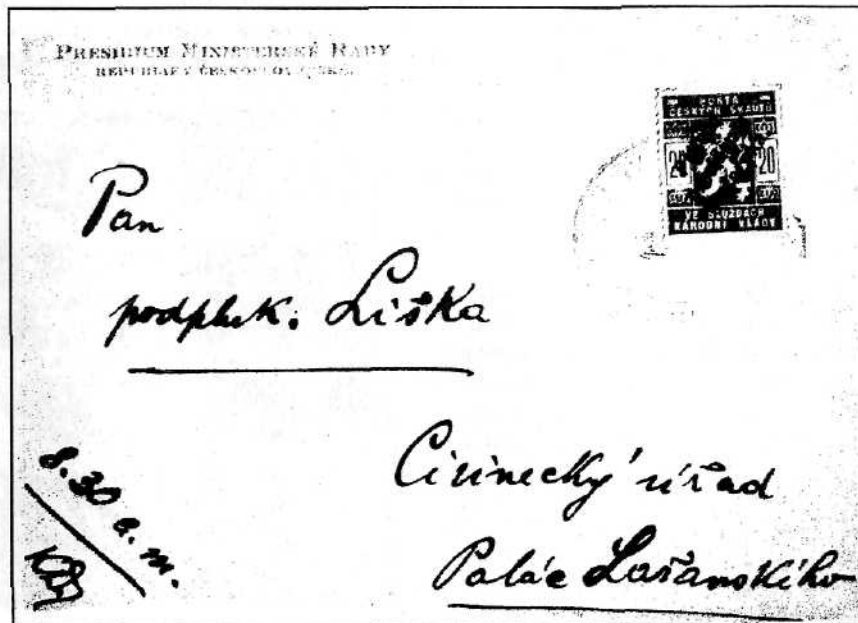 PRESIDIUM MINISTERSKÉ RADY
REPUBLIKY ČESKOSLOVENSKÉ.
POŠTA
ČESKÝCH SKAUTŮ
20 20
VE SLUŽBÁCH
NÁRODNÍ VLÁDY
Pan
podpluk. Liška
8.30 a.m.
Cizinecký úřad
Palác Lažanského